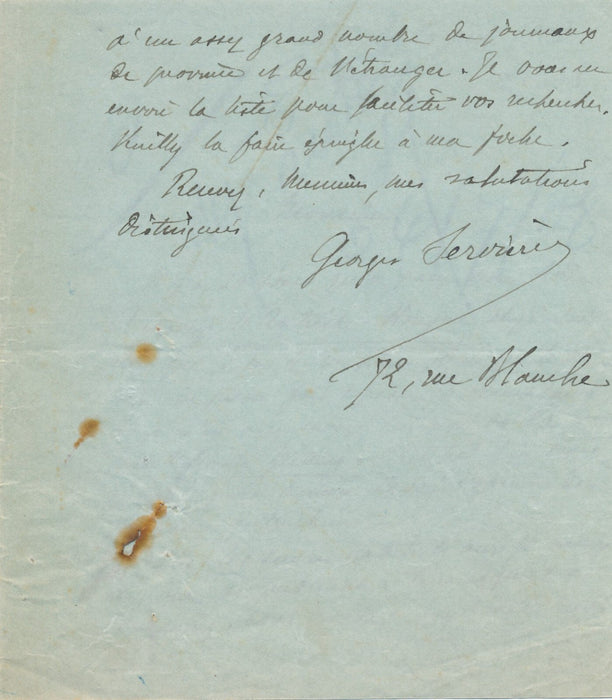 d'un assez grand nombre de journaux
de province et de l'étranger. Je vous en
envoie la liste pour faciliter vos recherches.
Veuillez la faire épingler à ma fiche.
Recevez, Messieurs, mes salutations
distinguées
Georges Servières
72, rue Blanche